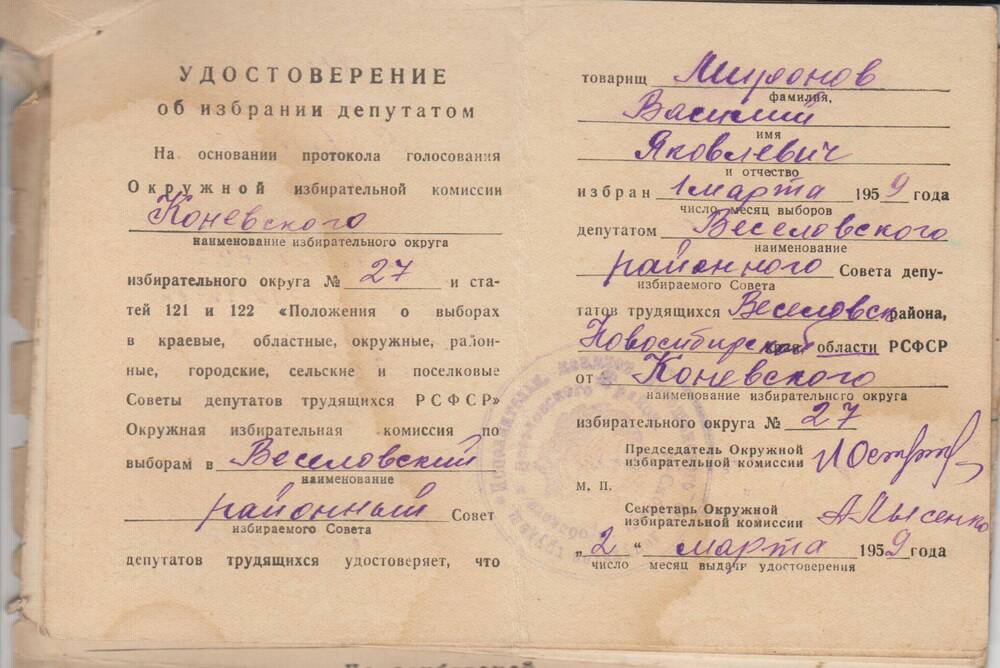 УДОСТОВЕРЕНИЕ
об избрании депутатом
На основании протокола голосования
Окружной избирательной комиссии
Коневского
наименование избирательного округа
избирательного округа № 27 и ста-
тей 121 и 122 «Положения о выборах
в краевые, областные, окружные, район-
ные, городские, сельские и поселковые
Советы депутатов трудящихся РСФСР»
Окружная избирательная комиссия по
выборам в Веселовский
наименование
районный Совет
избираемого Совета
депутатов трудящихся удостоверяет, что
товарищ Миронов
фамилия,
Василий
имя
Яковлевич
и отчество
избран 1 марта 1959 года
число, месяц выборов
депутатом Веселовского
наименование
районного Совета депу-
избираемого Совета
татов трудящихся Веселовск района,
Новосибирской области РСФСР
от Коневского
наименование избирательного округа
избирательного округа № 27
Председатель Окружной
избирательной комиссии
М. П.
Секретарь Окружной
избирательной комиссии А Лысенко
„2“ марта 1959 года
число месяц выдачи удостоверения